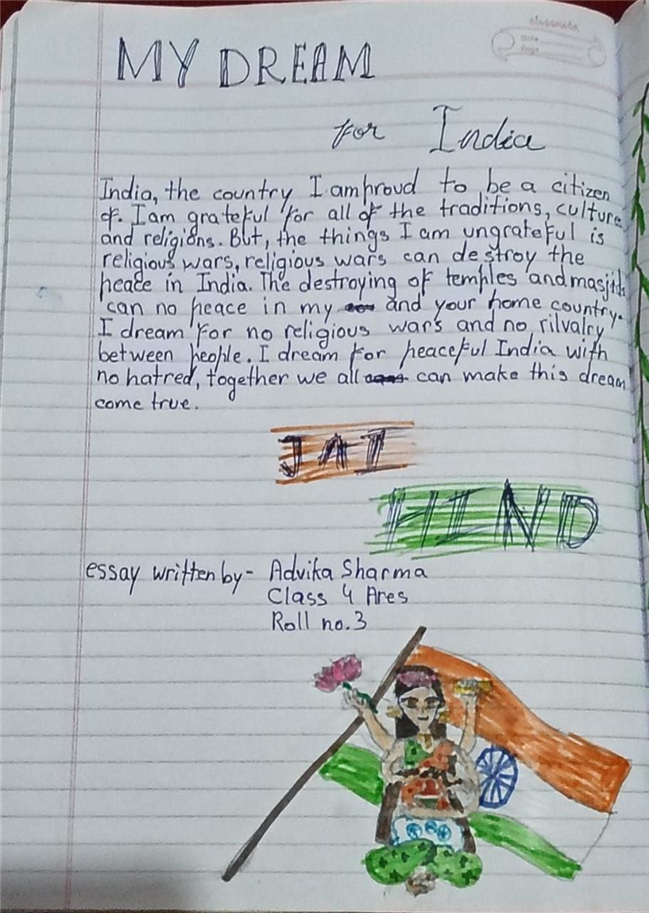 classmate
Date
Page
MY DREAM
for India
India, the country I am proud to be a citizen
of. I am grateful for all of the traditions, culture
and religions. But, the things I am ungrateful is
religious wars, religious wars can destroy the
peace in India. The destroying of temples and masjids
can no peace in my and your home country.
I dream for no religious wars and no rilvalry
between people. I dream for peaceful India with
no hatred, together we all can make this dream
come true.
JAI
HIND
essay written by- Advika Sharma
Class 4 Ares
Roll no.3